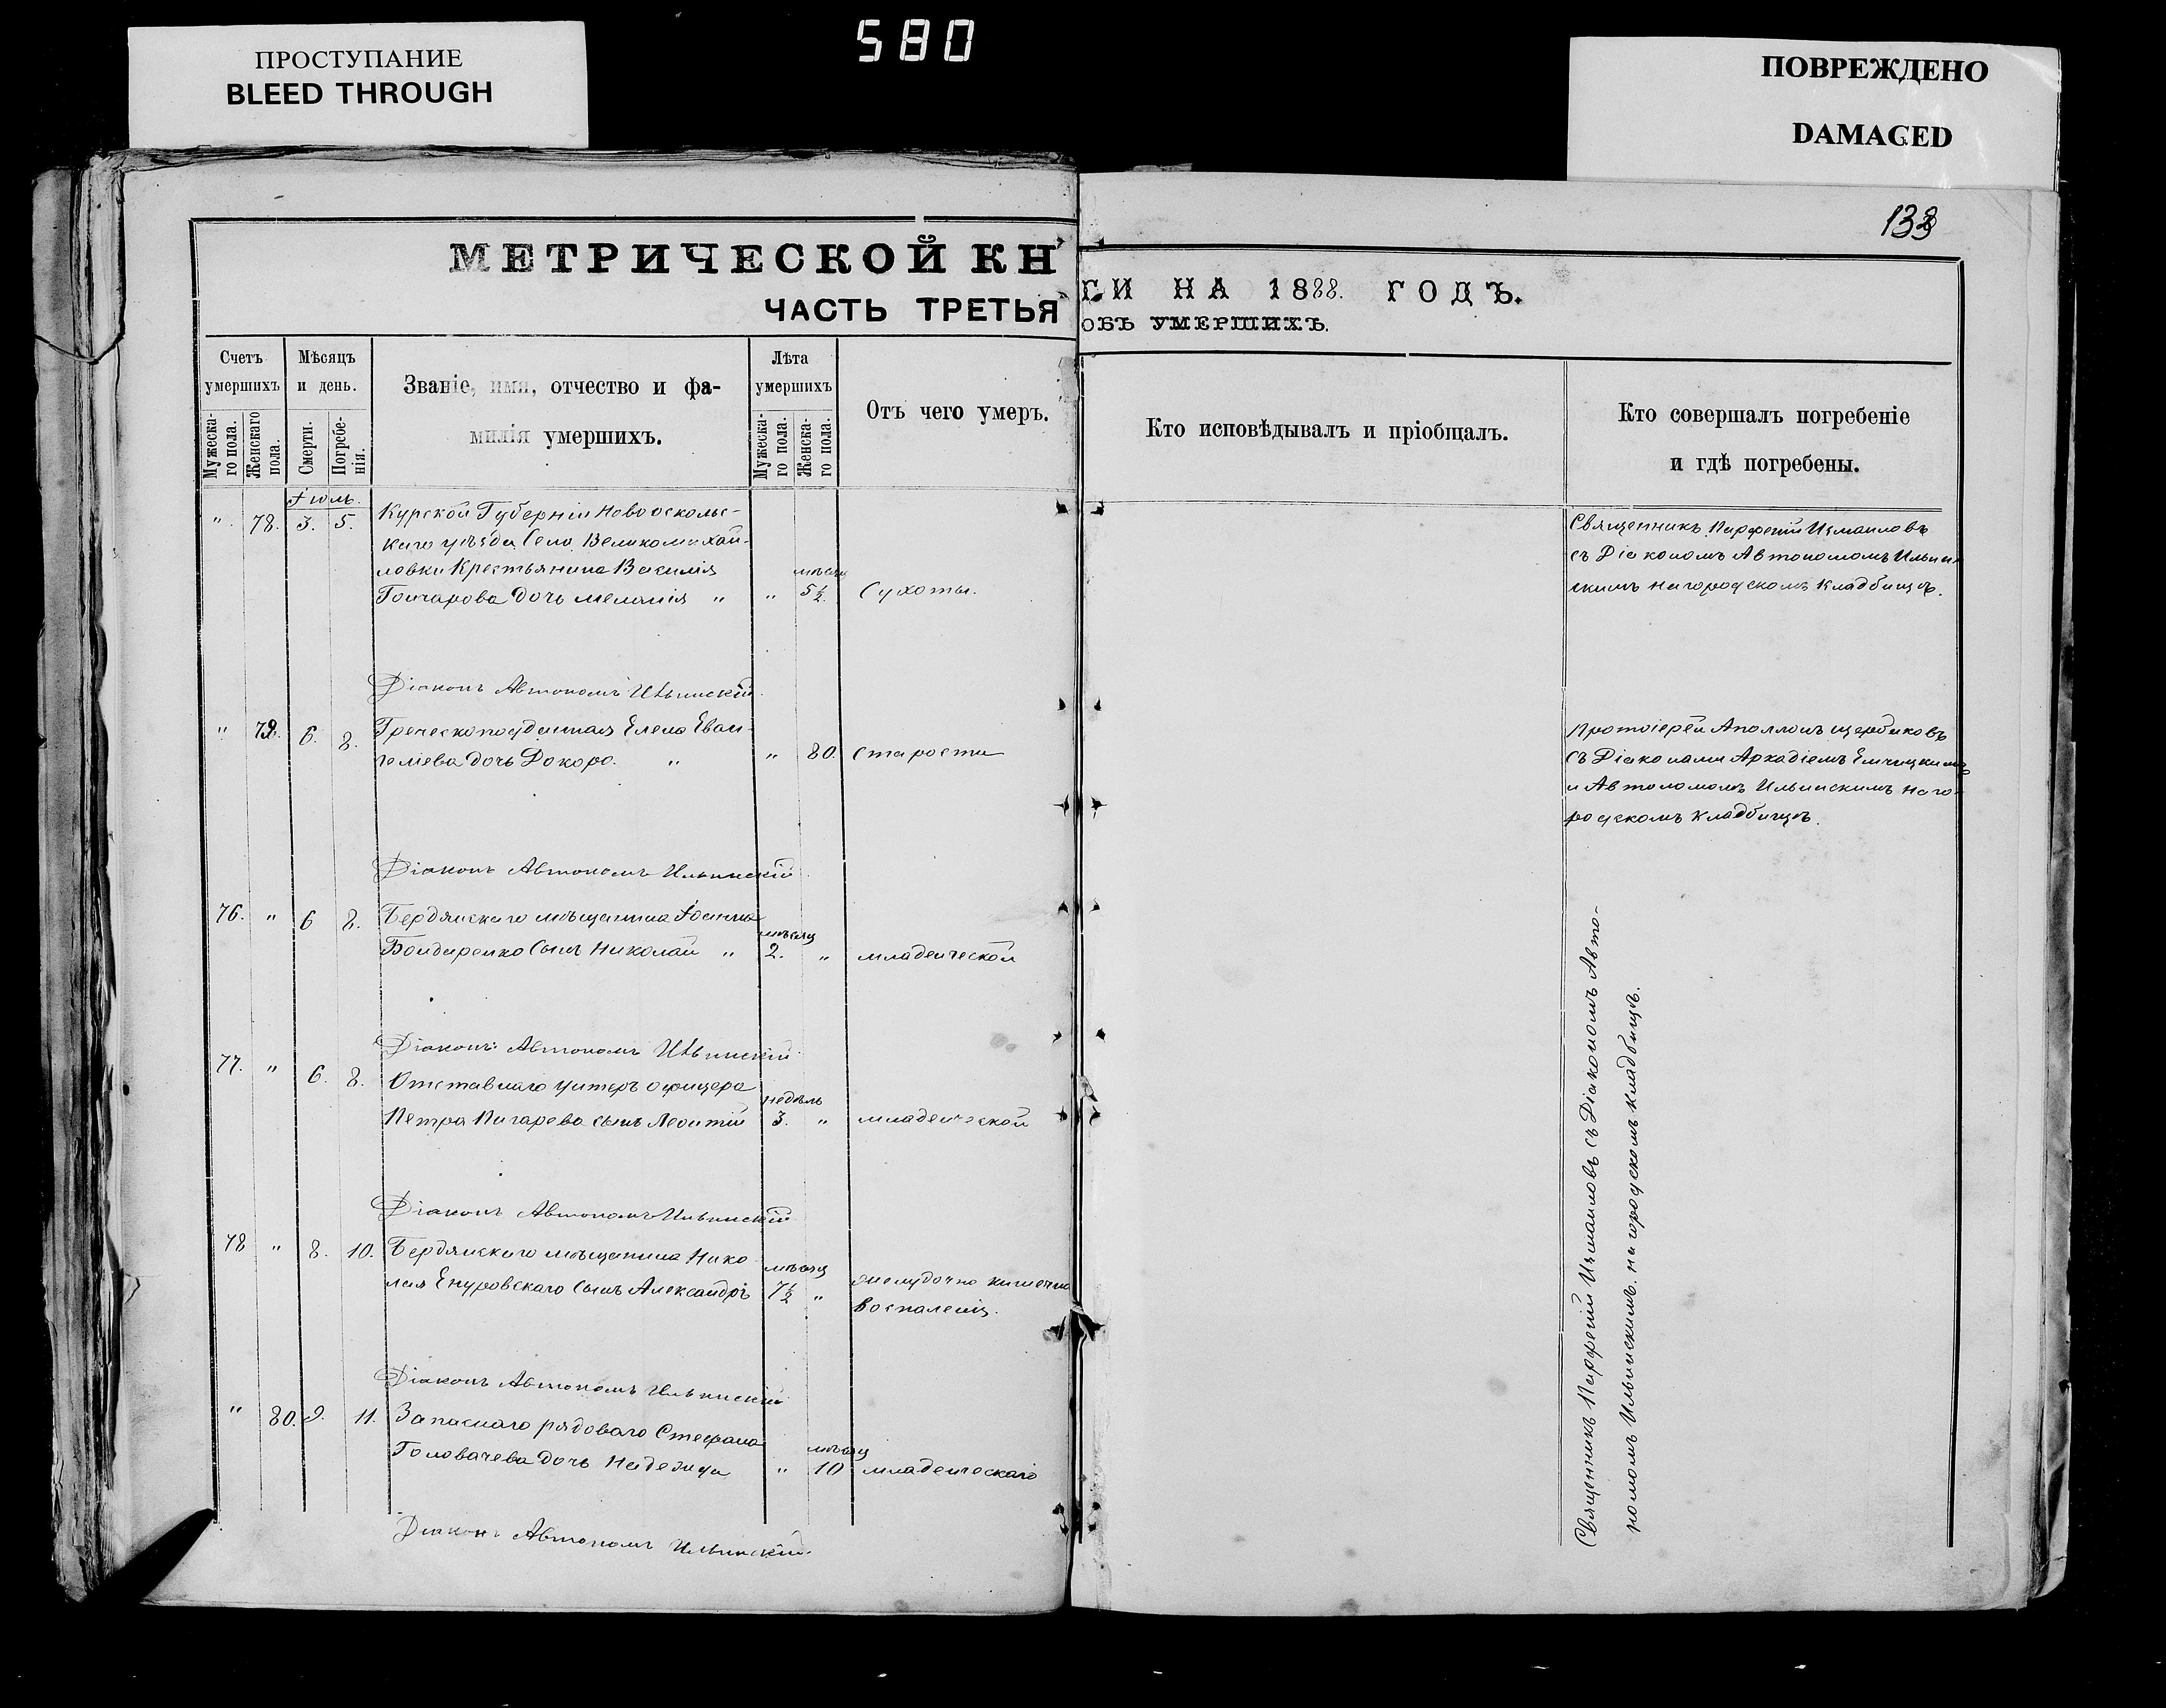 580
ПРОСТУПАНИЕ
BLEED THROUGH
ПОВРЕЖДЕНО
DAMAGED
133
МЕТРИЧЕСКОЙ КН
ЧАСТЬ ТРЕТЬЯ
ГИ НА 1888. ГОДЪ.
ОБЪ УМЕРШИХЪ.
Счетъ умершихъ
Мужеска-
го пола.
Женскаго
пола.
Мѣсяцъ и день.
Смерти.
Погребе-
нія.
Званіе, имя, отчество и фа-
милія умершихъ.
Лѣта умершихъ
Мужеска-
го пола.
Женска-
го пола.
Отъ чего умеръ.
Кто исповѣдывалъ и пріобщалъ.
Кто совершалъ погребеніе
и гдѣ погребены.
Іюль.
" 78. 3. 5. Курской Губерніи Новоосколь-
скаго уѣзда Села Великомихай-
ловки Крестьянина Василія
мѣсяц
Гончарова дочь Меланія " " 5½ Сухоты.
Священникъ Парфеній Измаиловъ
съ Діакономъ Автономомъ Ильин-
скимъ на городскомъ кладбищѣ.
Діаконъ Автономъ Ильинскій.
" 79. 6. 8. Греческоподданная Елена Еван-
гелиева дочь Докоро. " " 80. старости
Протоіерей Аполлонъ Щербаковъ
съ Діаконами Аркадіемъ Емчицкимъ
и Автономомъ Ильинскимъ на го-
родскомъ кладбищѣ.
Діаконъ Автономъ Ильинскій
76. " 6 8. Бердянскаго мѣщанина Іоанна
мѣсяц
Бондаренко сынъ Николай " 2. " младенческой
Діаконъ Автономъ Ильинскій
77. " 6. 8. Отставнаго унтеръ офицера
недѣль
Петра Пигарева сынъ Леонтій 3. " младенческой
Діаконъ Автономъ Ильинскій
78 " 8. 10. Бердянскаго мѣщанина Нико-
мѣсяц
лая Енуровскаго сынъ Александръ 7½ " желудочно кишечна
воспаленія.
Діаконъ Автономъ Ильинскій
" 80. 9. 11. Запаснаго рядоваго Стефана
мѣсяц
Головачева дочь Надежда " 10 младенческаго
Діаконъ Автономъ Ильинскій.
Священникъ Парфеній Измаиловъ съ Діакономъ Авто-
номомъ Ильинскимъ на городскомъ кладбищѣ.